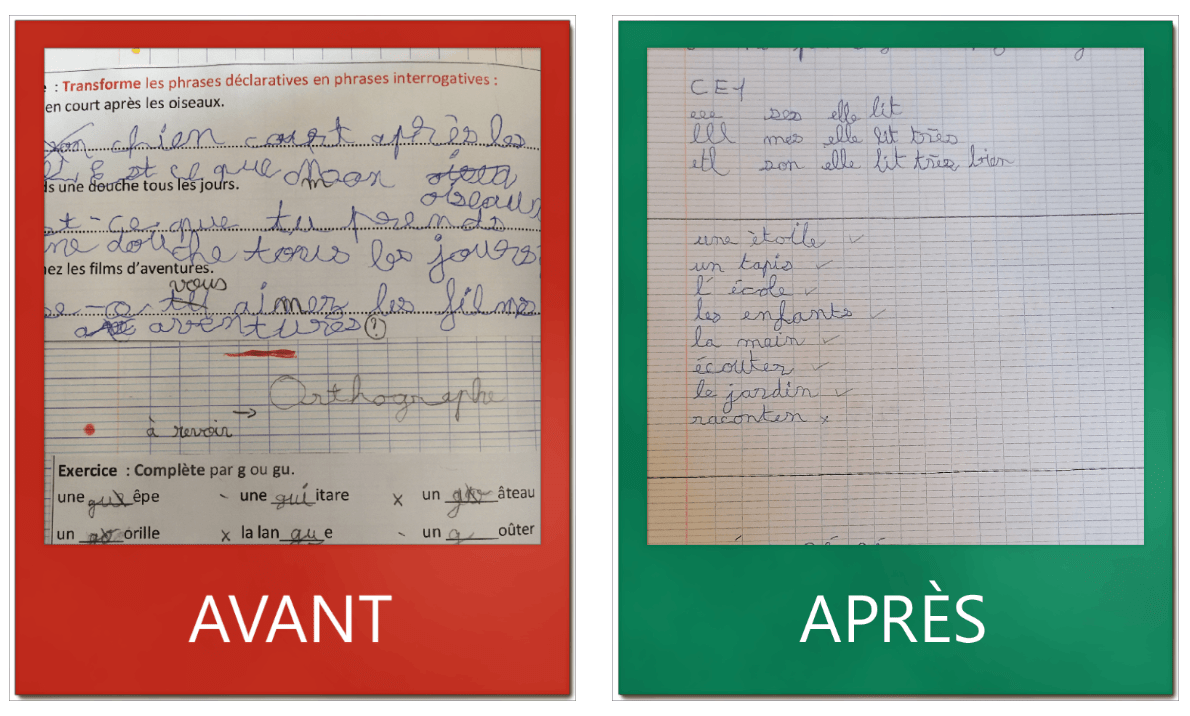 : Transforme les phrases déclaratives en phrases interrogatives :
en court après les oiseaux.
chien court après les
Est ce que Mon
oiseaux
ds une douche tous les jours.
st-ce que tu prends
ne douche tous les jours
ez les films d'aventures.
vous
se-ce tu aimer les films
aventures ?
Orthographe
à revoir →
Exercice : Complète par g ou gu.
une gu êpe - une gui itare x un g âteau
un orille x la lan gu e - un g oûter
AVANT
CE1
eee ses elle lit
lll mes elle lit très
etl son elle lit très bien
une ètoile ✓
un tapis ✓
l'école ✓
les enfants ✓
la main ✓
écouter ✓
le jardin ✓
raconten x
APRÈS